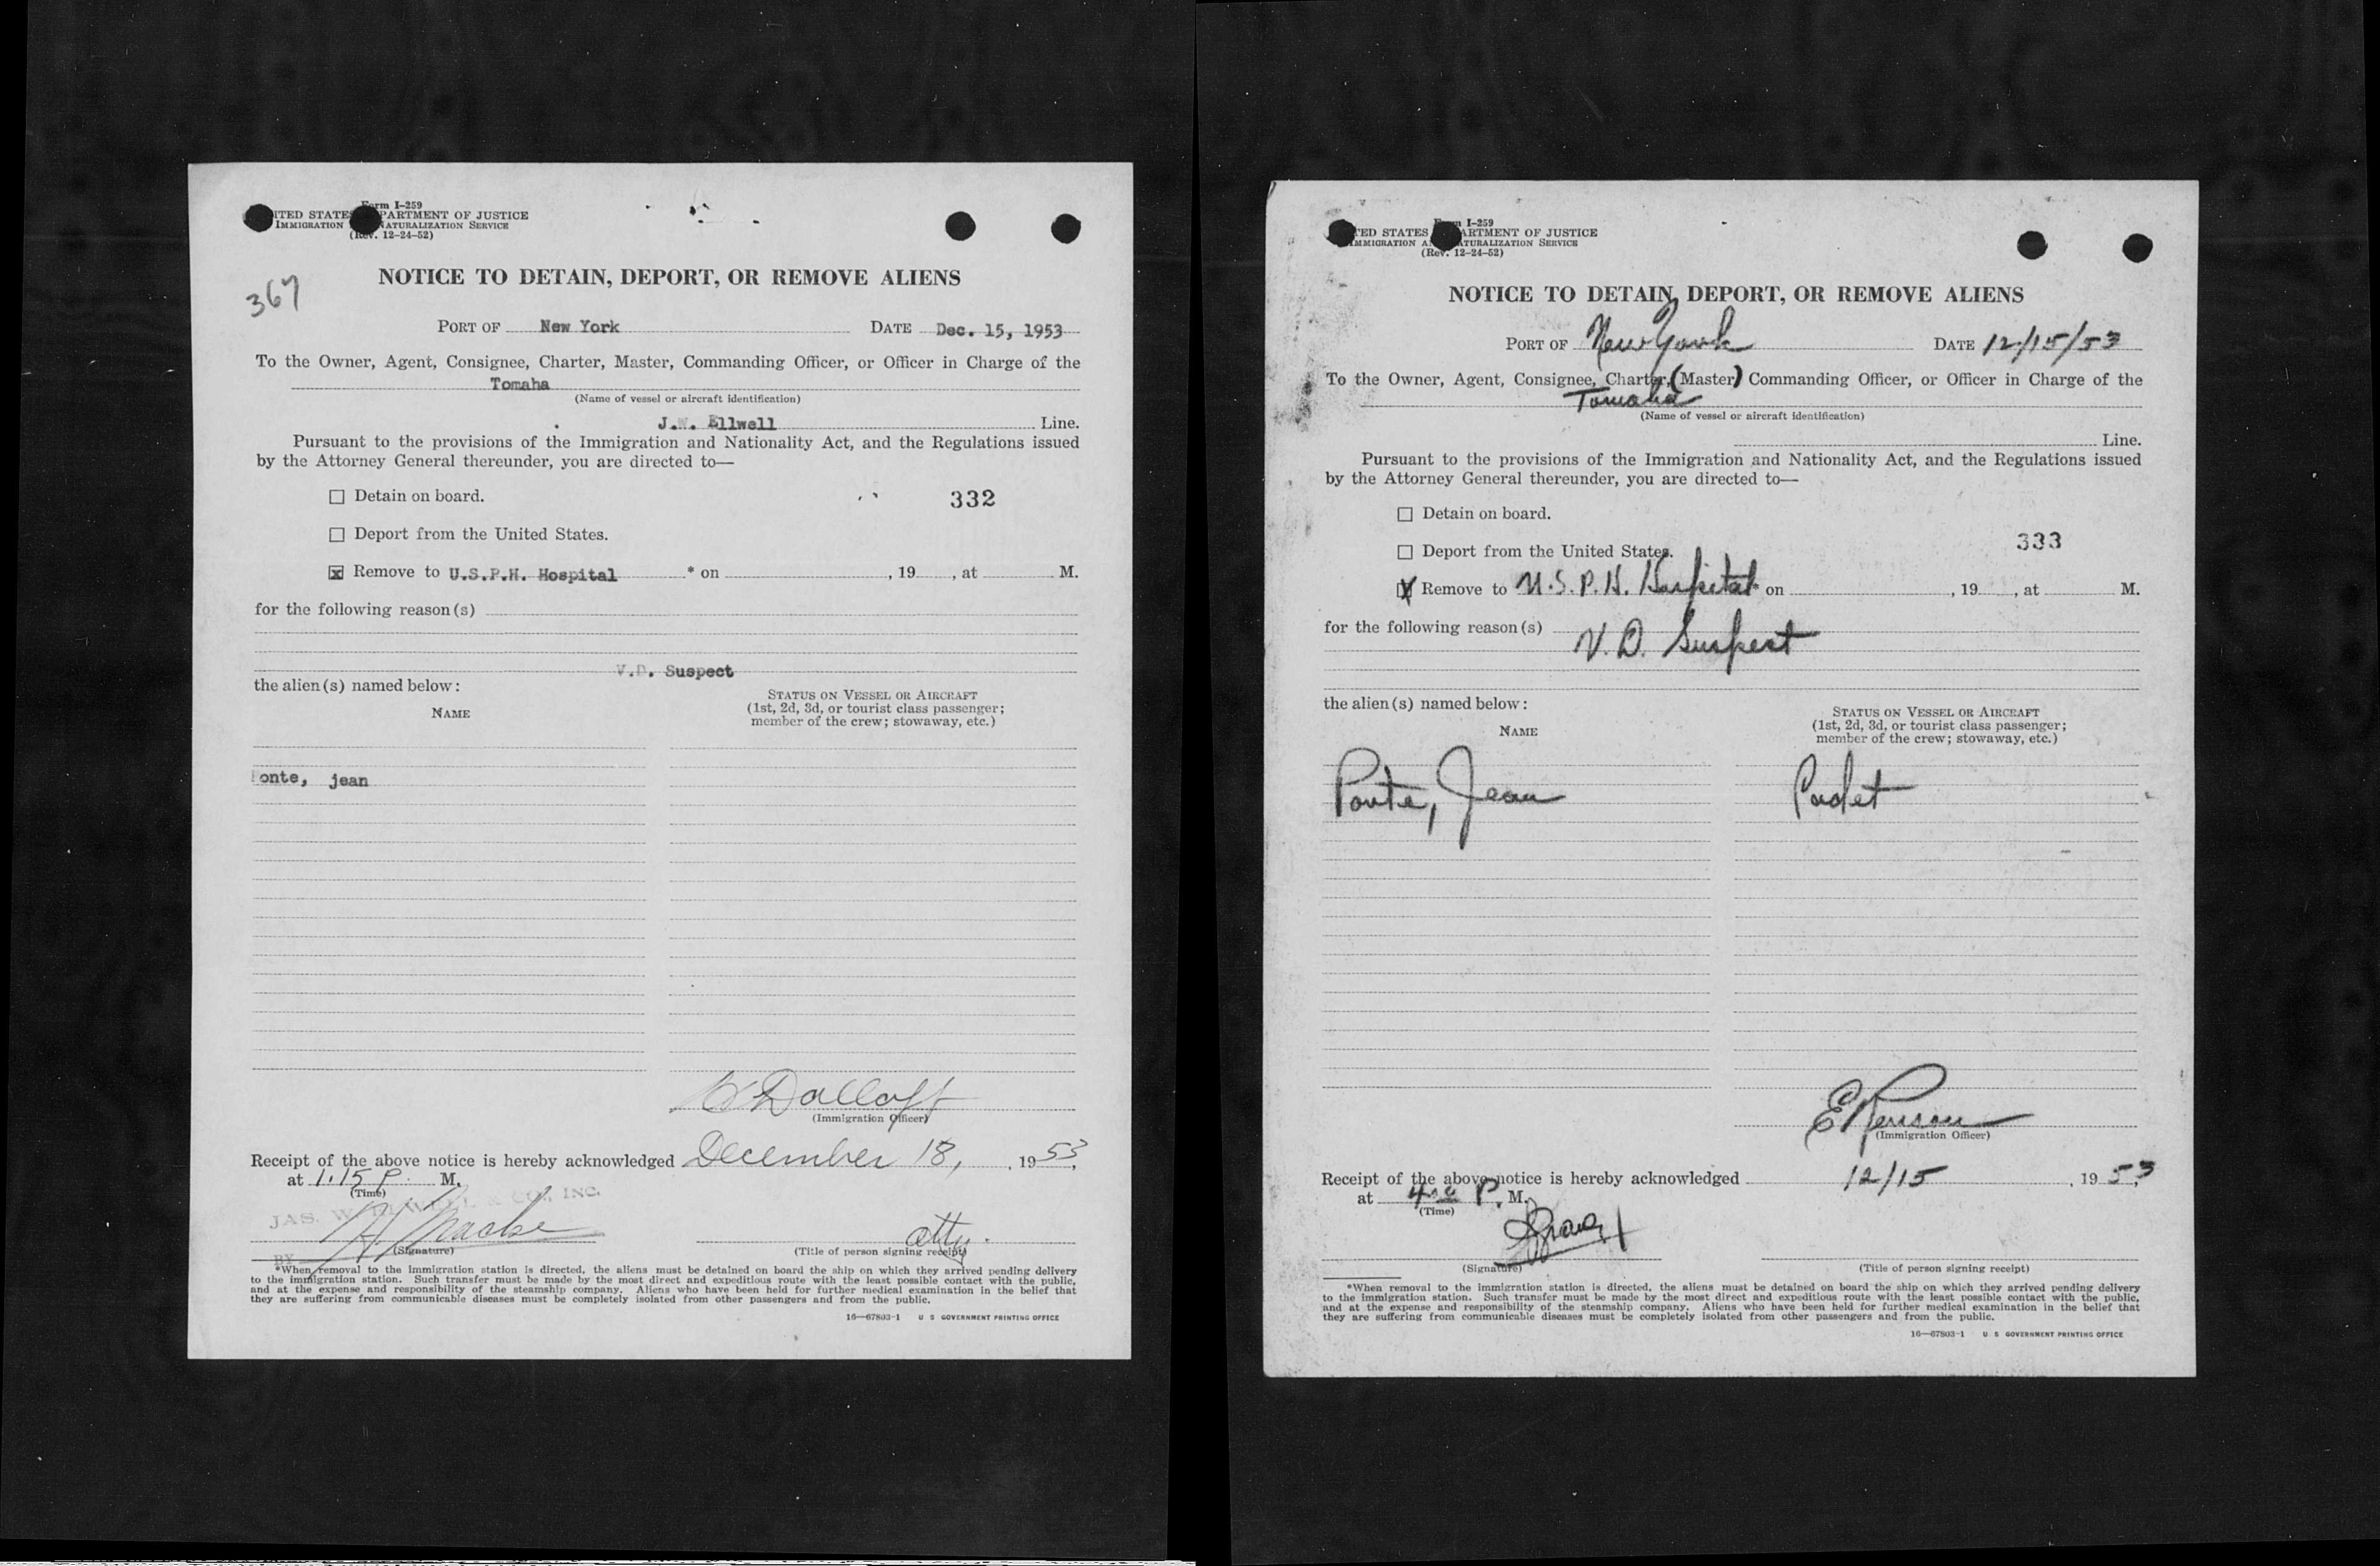 Form I-259
UNITED STATES DEPARTMENT OF JUSTICE
IMMIGRATION AND NATURALIZATION SERVICE
(Rev. 12-24-52)
NOTICE TO DETAIN, DEPORT, OR REMOVE ALIENS
367
PORT OF New York DATE Dec. 15, 1953
To the Owner, Agent, Consignee, Charter, Master, Commanding Officer, or Officer in Charge of the
Tomaha
(Name of vessel or aircraft identification)
J.W. Ellwell Line.
Pursuant to the provisions of the Immigration and Nationality Act, and the Regulations issued
by the Attorney General thereunder, you are directed to—
☐ Detain on board. 332
☐ Deport from the United States.
☒ Remove to U.S.P.H. Hospital * on , 19 , at M.
for the following reason(s)
V.D. Suspect
the alien(s) named below:
NAME
STATUS ON VESSEL OR AIRCRAFT
(1st, 2d, 3d, or tourist class passenger;
member of the crew; stowaway, etc.)
Ponte, jean
(Immigration Officer)
Receipt of the above notice is hereby acknowledged December 18, , 1953,
at 1.15 P. M.
(Time)
JAS. W. ELWELL & CO., INC.
BY
atty.
(Signature) (Title of person signing receipt)
*When removal to the immigration station is directed, the aliens must be detained on board the ship on which they arrived pending delivery
to the immigration station. Such transfer must be made by the most direct and expeditious route with the least possible contact with the public,
and at the expense and responsibility of the steamship company. Aliens who have been held for further medical examination in the belief that
they are suffering from communicable diseases must be completely isolated from other passengers and from the public.
16—67803-1 U S GOVERNMENT PRINTING OFFICE
Form I-259
UNITED STATES DEPARTMENT OF JUSTICE
IMMIGRATION AND NATURALIZATION SERVICE
(Rev. 12-24-52)
NOTICE TO DETAIN, DEPORT, OR REMOVE ALIENS
PORT OF New York DATE 12/15/53
To the Owner, Agent, Consignee, Charter, (Master) Commanding Officer, or Officer in Charge of the
Tomaha
(Name of vessel or aircraft identification)
Line.
Pursuant to the provisions of the Immigration and Nationality Act, and the Regulations issued
by the Attorney General thereunder, you are directed to—
☐ Detain on board.
333
☐ Deport from the United States.
☒ Remove to U.S.P.H. Hospital * on , 19 , at M.
for the following reason(s)
V.D. Suspect
the alien(s) named below:
NAME
STATUS ON VESSEL OR AIRCRAFT
(1st, 2d, 3d, or tourist class passenger;
member of the crew; stowaway, etc.)
Ponte, Jean Cadet
(Immigration Officer)
Receipt of the above notice is hereby acknowledged 12/15 , 1953,
at 4 P. M.
(Time)
(Signature) (Title of person signing receipt)
*When removal to the immigration station is directed, the aliens must be detained on board the ship on which they arrived pending delivery
to the immigration station. Such transfer must be made by the most direct and expeditious route with the least possible contact with the public,
and at the expense and responsibility of the steamship company. Aliens who have been held for further medical examination in the belief that
they are suffering from communicable diseases must be completely isolated from other passengers and from the public.
16—67803-1 U S GOVERNMENT PRINTING OFFICE